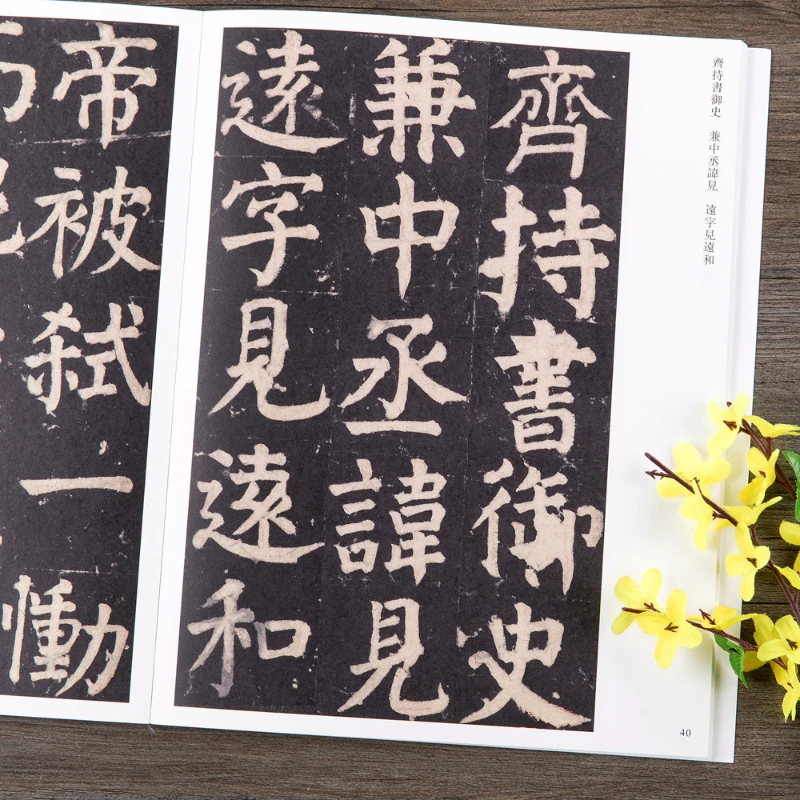 齊持書御史
兼中丞諱見
遠字見遠和
齊持書御史 兼中丞諱見 遠字見遠和
40
帝被弑一慟